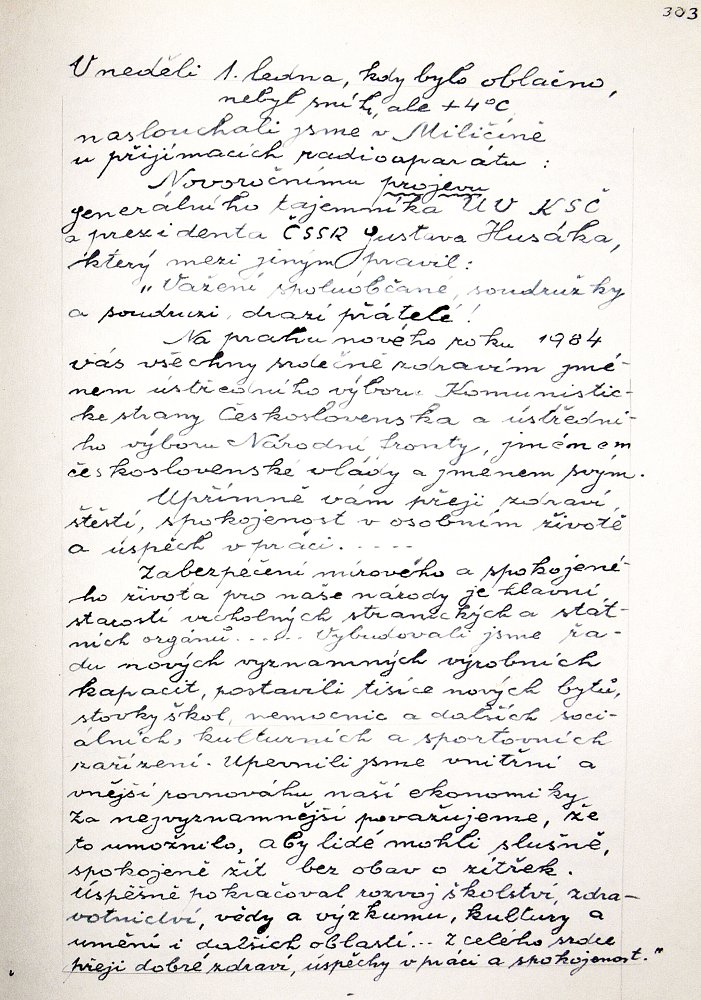 303
V neděli 1. ledna, kdy bylo oblačno,
nebyl sníh, ale +4°C
naslouchali jsme v Miličíně
u přijímacích radioaparátu :
Novoročnímu projevu
generálního tajemníka ÚV KSČ
a prezidenta ČSSR Gustava Husáka,
který mezi jiným pravil:
„Vážení spoluobčané, soudružky
a soudruzi, drazí přátelé!
Na prahu nového roku 1984
vás všechny srdečně zdravím jmé-
nem ústředního výboru Komunistic-
ké strany Československa a ústřední-
ho výboru Národní fronty, jménem
československé vlády a jménem svým.
Upřímně vám přeji zdraví,
štěstí, spokojenost v osobním životě
a úspěch v práci.....
Zabezpečení mírového a spokojené-
ho života pro naše národy je hlavní
starostí vrcholných stranických a stát-
ních orgánů...... Vybudovali jsme řa-
du nových významných výrobních
kapacit, postavili tisíce nových bytů,
stovky škol, nemocnic a dalších soci-
álních, kulturních a sportovních
zařízení. Upevnili jsme vnitřní a
vnější rovnováhu naší ekonomiky
Za nejvýznamnější považujeme, že
to umožnilo, aby lidé mohli slušně,
spokojeně žít bez obav o zítřek.
Úspěšně pokračoval rozvoj školství, zdra-
votnictví, vědy a výzkumu, kultury a
umění i dalších oblastí... Z celého srdce
přeji dobré zdraví, úspěchy v práci a spokojenost."